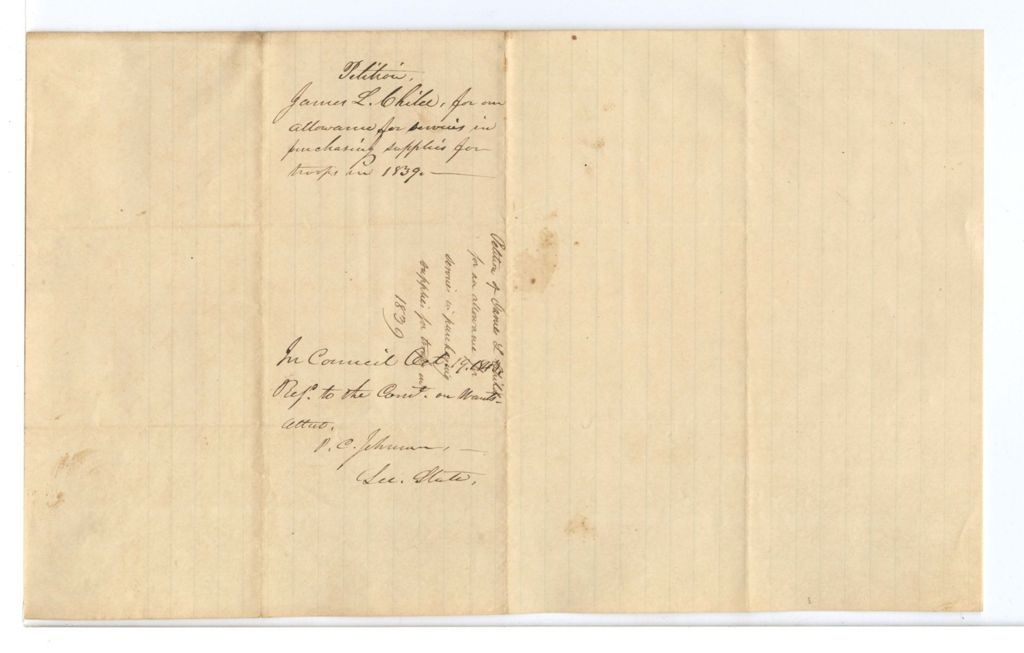 Petition,
James L. Child, for an
allowance for services in
purchasing supplies for
troops in 1839.
Petition of James L Child
for an allowance for
service in purchasing
supplies for troops in
1839
In Council Oct. 19.
Ref. to the Comt. on Warrts-
Attest,
P. C. Johnson,
Sec. State,